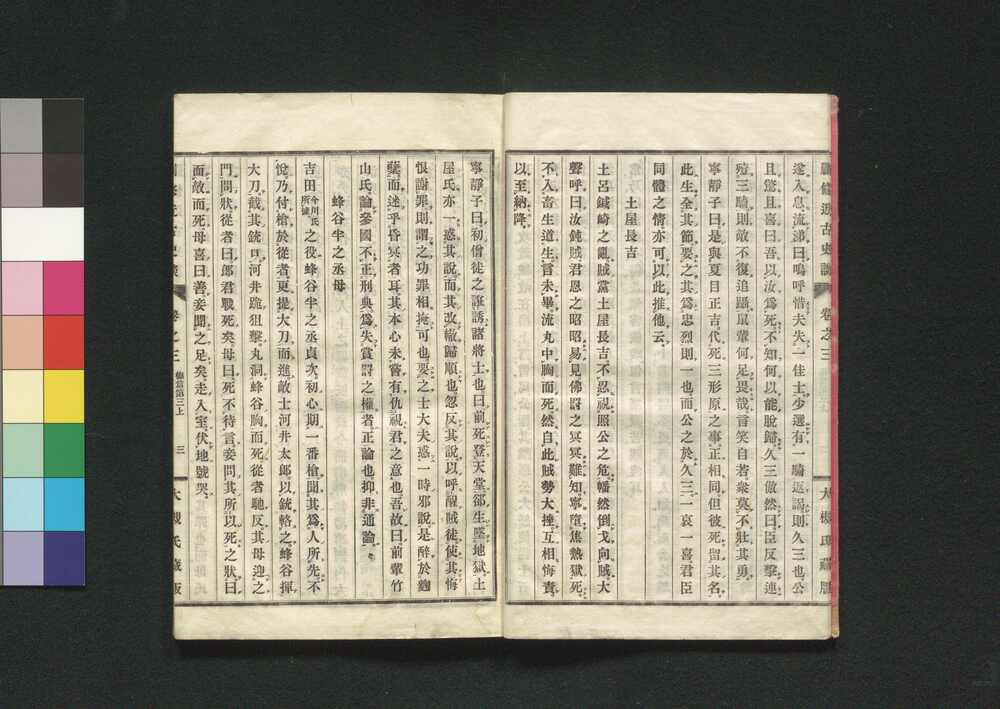 遂入息流涕曰嗚呼惜夫失一佳士少選有一騎返謁則久三也公
且慰且喜曰吾以汝爲死不知何以能脫歸久三傲然曰臣反擊連
殪三騎則敵不復追躡鼠輩何足畏哉言笑自若衆莫不壯其勇
寧靜子曰是與夏目正吉代死三形原之事正相同但彼死留其名
此生全其節要之其爲忠烈則一也而公之於久三一哀一喜君臣
同體之情亦可以此推他云
土屋長吉
土呂鍼崎之亂賊黨土屋長吉不忍視照公之危幡然倒戈向賊大
聲呼曰汝鈍賊君恩之昭昭易見佛罸之冥冥難知寧墮焦熱獄死
不入畜生道生言未畢流丸中胸而死然自此賊勢大挫互相悔責
以至納降
寧靜子曰初僧徒之誑誘諸將士也曰前死登天堂郤生墜地獄土
屋氏亦一惑其說而其改轍歸順也忽反其說以呼醒賊徒使其悔
恨謝罪則謂之功罪相掩可也要之士大夫惑一時邪說是醉於麴
蘖而迷乎昏冥者耳其本心未嘗有仇視君之意也吾故曰前輩竹
山氏論參國不正刑典爲失賞罸之權者正論也抑非通論
蜂谷半之丞母
吉田今川氏所據之役蜂谷半之丞貞次初心期一番槍聞其爲人所先不
悅乃付槍於從者更提大刀而進敵士河井太郎以銃幣之蜂谷揮
大刀截其銃口河井跪狙擊丸洞蜂谷胸而死從者馳反其母迎之
門問狀從者曰郎君戰死矣母曰死不待言妾問其所以死之狀曰
面敵而死母喜曰善妾聞之足矣走入室伏地號哭
卷之三
大槻氏藏版
卷之三
三
大槻氏藏版